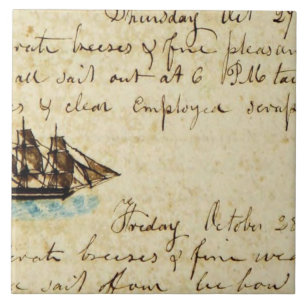 Thursday Oct 27
erate breezes & fine pleasan
all sail out at 6 PM tac
es & clear Employed scrap
Friday October 28
erate breezes & fine wea
sail